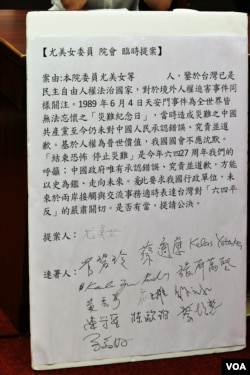 【尤美女委員 院會 臨時提案】
案由:本院委員尤美女等 人,鑒於台灣已是
民主自由人權法治國家,對於境外人權迫害事件同
樣關注。1989年6月4日天安門事件為全世界皆
無法忘懷之「災難紀念日」,當時造成災難之中國
共產黨至今仍未對中國人民承認錯誤,究責並道
歉。基於人權為普世價值,我國國會不應沈默。
「結束恐怖 停止災難」是今年六四27周年我們的
呼籲;中國政府唯有承認錯誤、究責並道歉,方能
以史為鑑、走向未來。爰此要求我國行政單位,未
來於兩岸接觸與交流事務適時表達台灣對「六四平
反」的嚴肅關切。是否有當,提請公決。
提案人:尤美女
連署人:李 蔡適應 Kolas Yotaka
陳欣
VOA